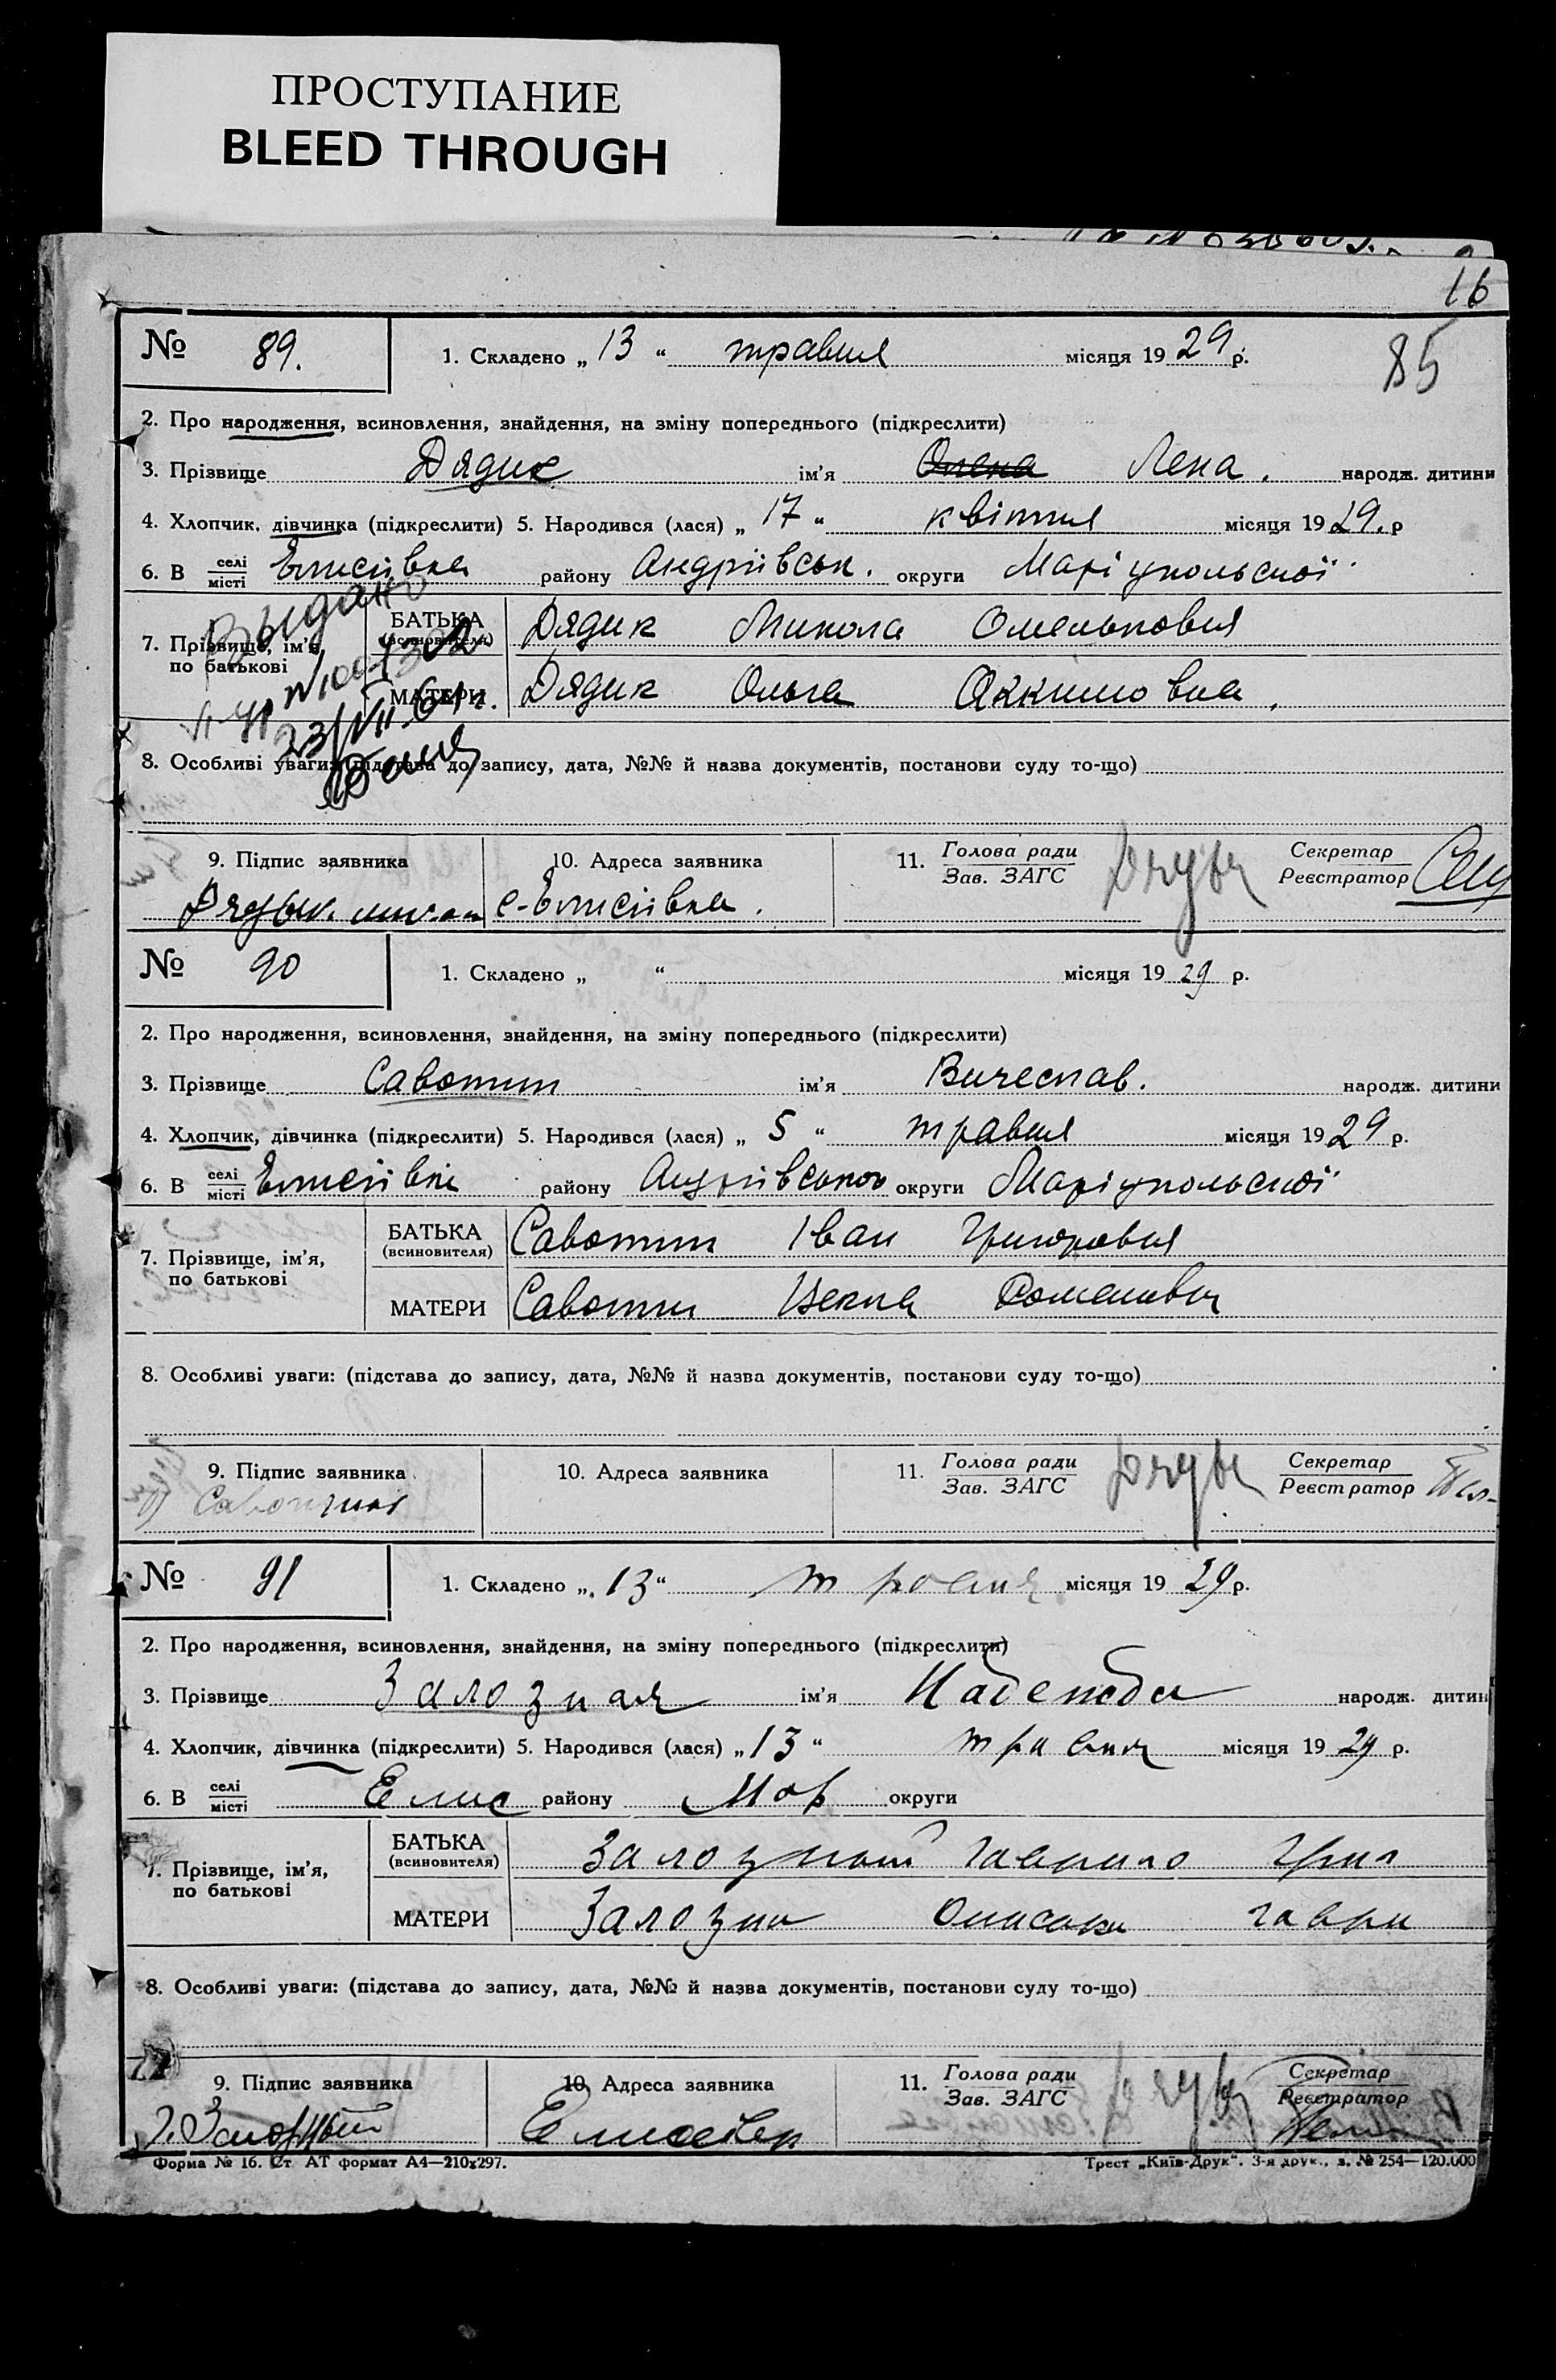 ПРОСТУПАНИЕ
BLEED THROUGH
16
85
№ 89. 1. Складено „ 13 “ травня місяця 19 29 р.
2. Про народження, всиновлення, знайдення, на зміну попереднього (підкреслити)
3. Прізвище Дядик ім'я Олена Лена. народж. дитини
4. Хлопчик, дівчинка (підкреслити) 5. Народився (лася) „ 17 “ квітня місяця 19 29. р
6. В селі/місті Елисіївка району Андріївськ. округи Маріупольської
Выдано
23/VII-61 г.
7. Прізвище, ім'я, по батькові
БАТЬКА (всиновителя) Дядик Микола Омелькович
МАТЕРИ Дядик Ольга Аккимовна.
8. Особливі уваги: (підстава до запису, дата, №№ й назва документів, постанови суду то-що)
9. Підпис заявника 10. Адреса заявника 11. Голова ради Зав. ЗАГС Секретар Реєстратор
с-Елисіівка.
№ 90 1. Складено „ “ місяця 19 29 р.
2. Про народження, всиновлення, знайдення, на зміну попереднього (підкреслити)
3. Прізвище Савотин ім'я Вичеслав. народж. дитини
4. Хлопчик, дівчинка (підкреслити) 5. Народився (лася) „ 5 “ травня місяця 19 29 р.
6. В селі/місті Елисіївкі району Андріївського округи Маріупольської
7. Прізвище, ім'я, по батькові
БАТЬКА (всиновителя) Савотин Іван Григорович
МАТЕРИ Савотин
8. Особливі уваги: (підстава до запису, дата, №№ й назва документів, постанови суду то-що)
9. Підпис заявника 10. Адреса заявника 11. Голова ради Зав. ЗАГС Секретар Реєстратор
№ 91 1. Складено „ 13 “ травня місяця 19 29 р.
2. Про народження, всиновлення, знайдення, на зміну попереднього (підкреслити)
3. Прізвище Залозная ім'я Надежда народж. дитин
4. Хлопчик, дівчинка (підкреслити) 5. Народився (лася) „ 13 “ травня місяця 19 29 р.
6. В селі/місті Елис району Мар округи
7. Прізвище, ім'я, по батькові
БАТЬКА (всиновителя) Залозной Гаврило Григ
МАТЕРИ Залозна Гаври
8. Особливі уваги: (підстава до запису, дата, №№ й назва документів, постанови суду то-що)
9. Підпис заявника 10. Адреса заявника 11. Голова ради Зав. ЗАГС Секретар Реєстратор
Форма № 16. Ст АТ формат А4—210х297. Трест „Київ-Друк“. 3-я друк., з. № 254—120.000